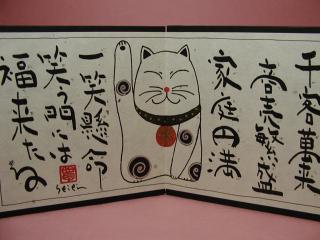 千客萬来
商売繁盛
家庭円満
一笑懸命
笑う門には
福来たる
Seien